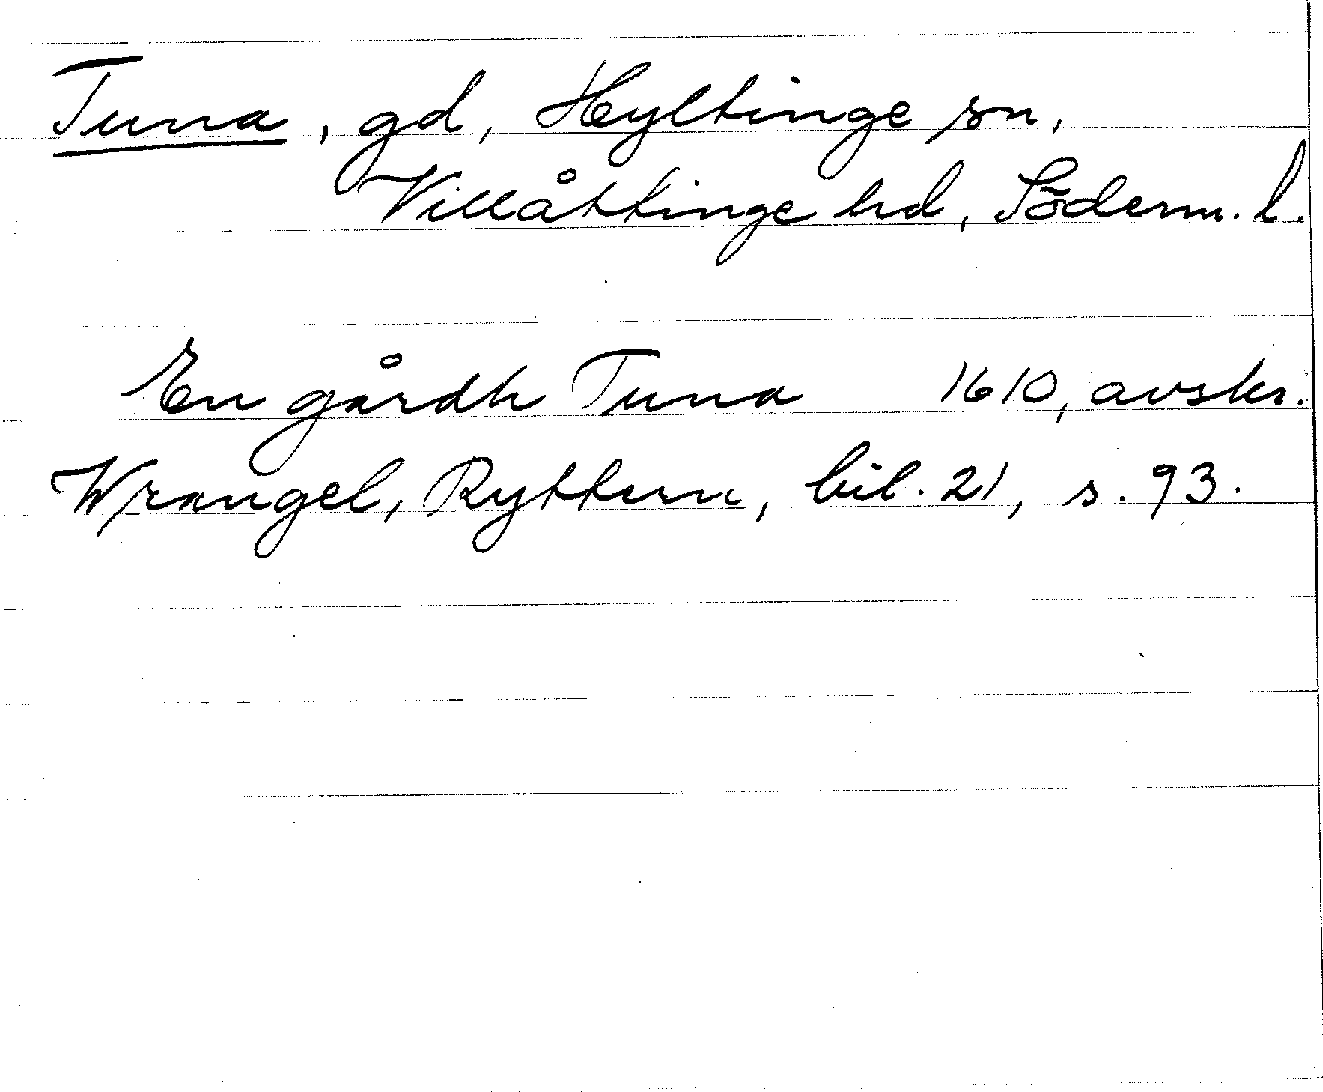 Tuna, gd, Hyltinge sn,
Villåttinge hd, Söderm. l.
En gårdh Tuna 1610, avskr.
Wrangel, Ryttern, bil. 21, s. 93.